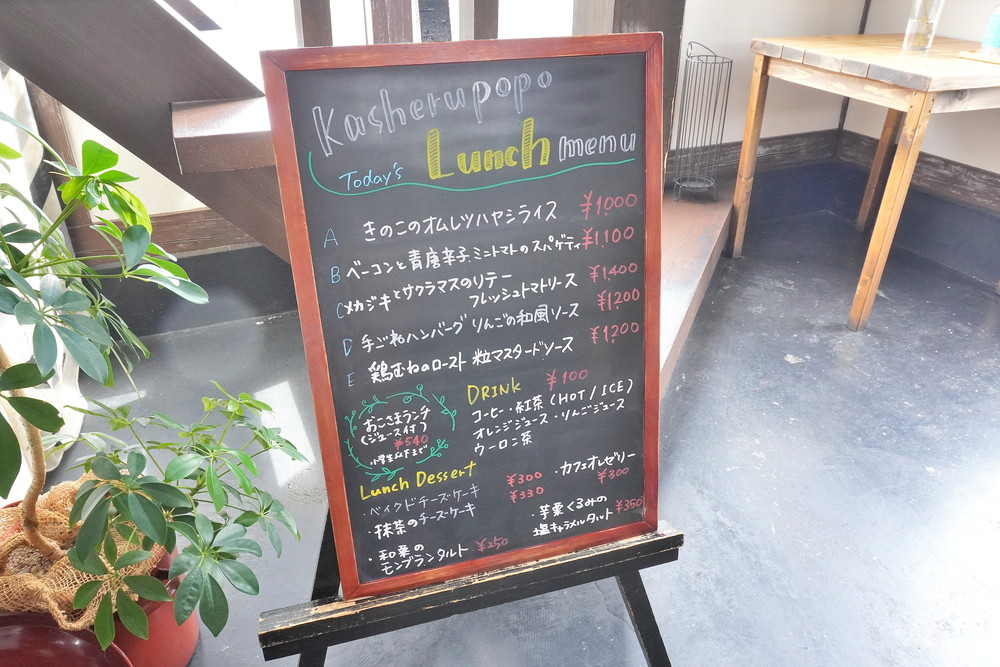 Kasherupopo
Today's Lunch menu
A きのこのオムレツハヤシライス ¥1,000
B ベーコンと青唐辛子、ミニトマトのスパゲティ ¥1100
C メカジキとサクラマスのソテー
フレッシュトマトソース ¥1400
D 手ごねハンバーグ りんごの和風ソース ¥1,200
E 鶏むねのロースト 粒マスタードソース ¥1,200
おこさまランチ
(ジュース付)
¥540
小学生以下まで
DRINK ¥100
コーヒー・紅茶(HOT/ICE)
オレンジジュース・りんごジュース
ウーロン茶
Lunch Dessert
・ベイクドチーズケーキ ¥300
・抹茶のチーズケーキ ¥330
・和栗の
モンブランタルト ¥250
・カフェオレゼリー
¥300
・芋栗くるみの
塩キャラメルタルト ¥350